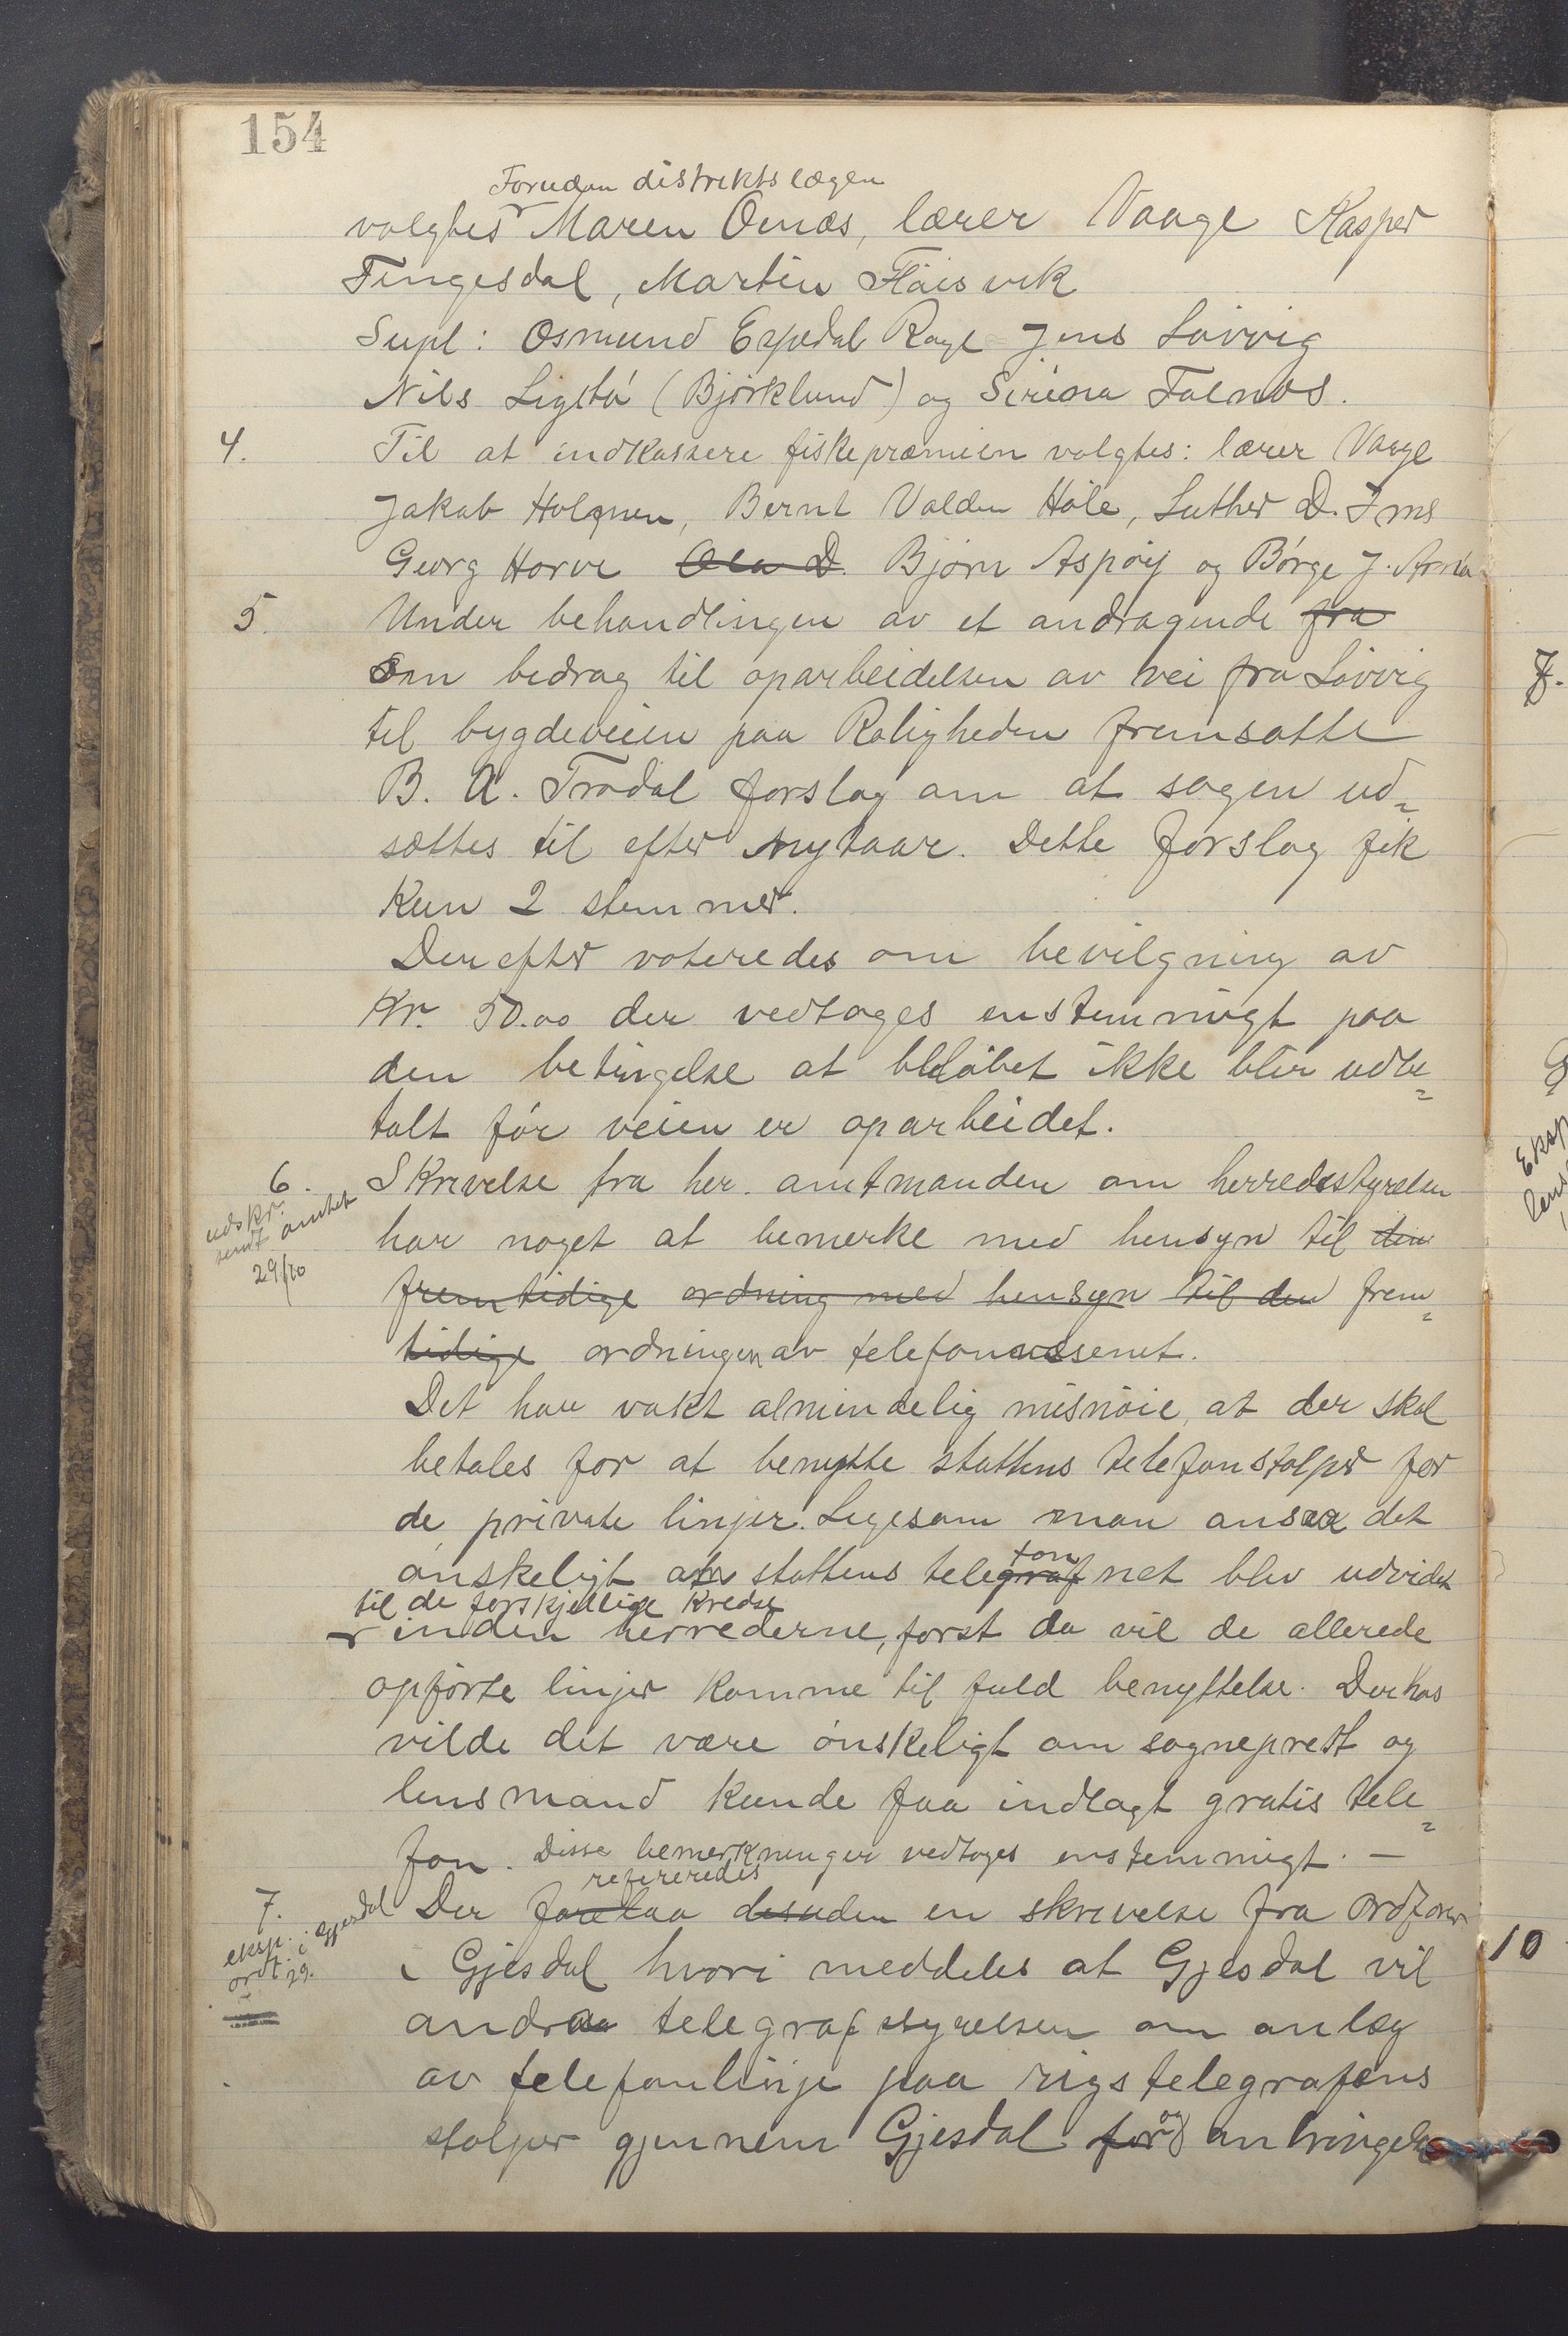 154
Foruden distriktslægen
valgtes Maren Ornæs, lærer Vaage Kasper
Tengesdal, Martin Fløisvik
Supl: Osmund Espedal Rage Jens Løvvig
Nils Ligtbø (Bjørklund) og Sirena Falnæs.
4. Til at indkassere fiskepræmien valgtes: lærer Vaage
Jakob Holmen, Bernt Valden Høle, Luther D. Ims
Georg Horve Ola D. Bjørn Aspøy og Børge J.
5. Under behandlingen av et andragende fra
om bedrag til oparbeidelsen av vei fra Løvvig
til bygdeveien paa Roligheden fremsatte
B. A. Tradal forslag om at sagen ud-
sættes til efter nytaar. Dette forslag fik
kun 2 stemmer.
Derefter voteredes om bevilgning av
Kr. 50.00 der vedtoges enstemmigt paa
den betingelse at beløbet ikke blir udbe-
talt før veien er oparbeidet.
6. Skrivelse fra her. amtmanden om herredsstyrelsen
udskr.
sendt amtet
29/10
har noget at bemerke med hensyn til den
fremtidige ordning med hensyn til den frem-
tidige ordningen av telefonvæsenet.
Det har vakt almindelig misnøie, at der skal
betales for at benytte stattens telefonstolper for
de private linjer. Ligesom man ansaa det
ønskeligt at stattens telegraf fon net blev udvidet
til de forskjellige kredse
inden herrederne, først da vil de allerede
opførte linjer komme til fuld benyttelse. Derhos
vilde det være ønskeligt om sogneprest og
lensmand kunde faa indlagt gratis tele-
fon. Disse bemerkninger vedtoges enstemmigt. —
refereredes
7. Der forelaa desuden en skrivelse fra ordfører
eksp.
ordf. i Gjesdal
29.
i Gjesdal hvori meddeles at Gjesdal vil
andra telegrafstyrelsen om anlæg
av telefonlinje paa rigstelegrafens
stolper gjennem Gjesdal for og anbringelse
7.
10